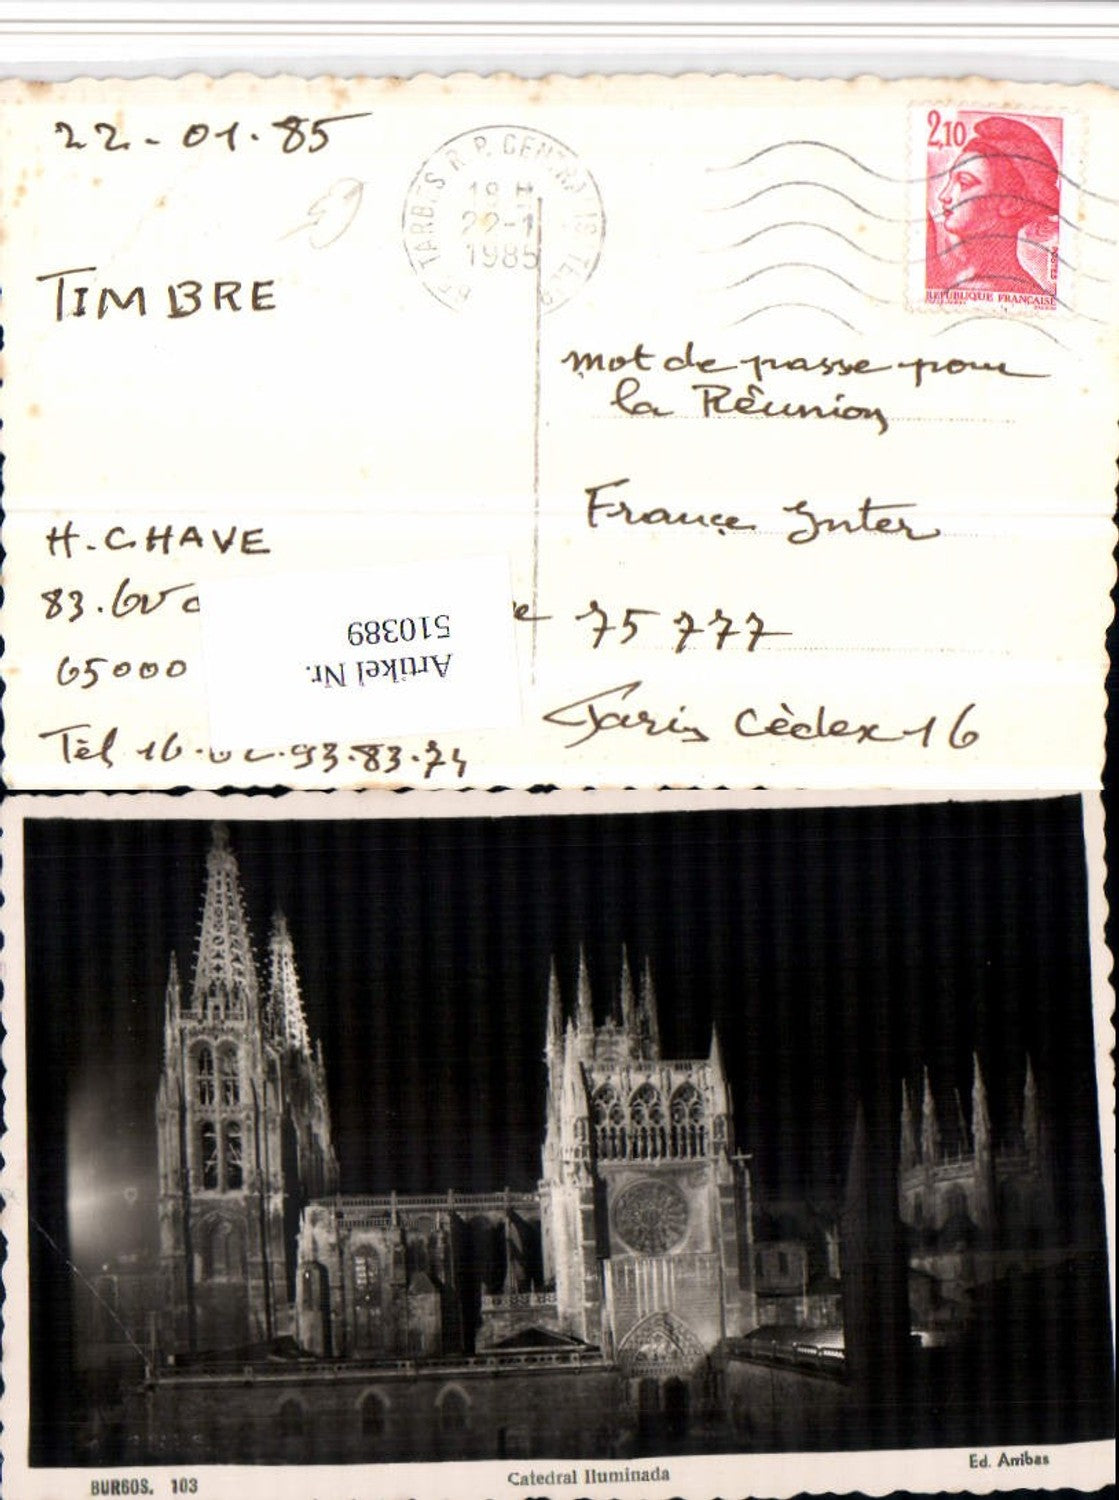 22-01.85
TARBES R.P.
18 H
22-1
1985
2,10
POSTES
REPUBLIQUE FRANÇAISE
TIMBRE
mot de passe pour
la Réunion
France Inter
75777
Paris Cèdex 16
H. CHAVE
83.
65000
Tèl 16. 93.83.74
Artikel Nr.
510389
BURGOS. 103
Catedral Iluminada
Ed. Arribas